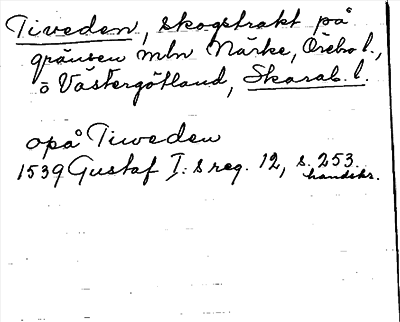 Tiveden, skogstrakt på
gränsen mln Närke, Örebo l.,
o Västergötland, Skarab. l.
opå Tiweden
1539 Gustaf I:s reg. 12, s. 253.
handskr.